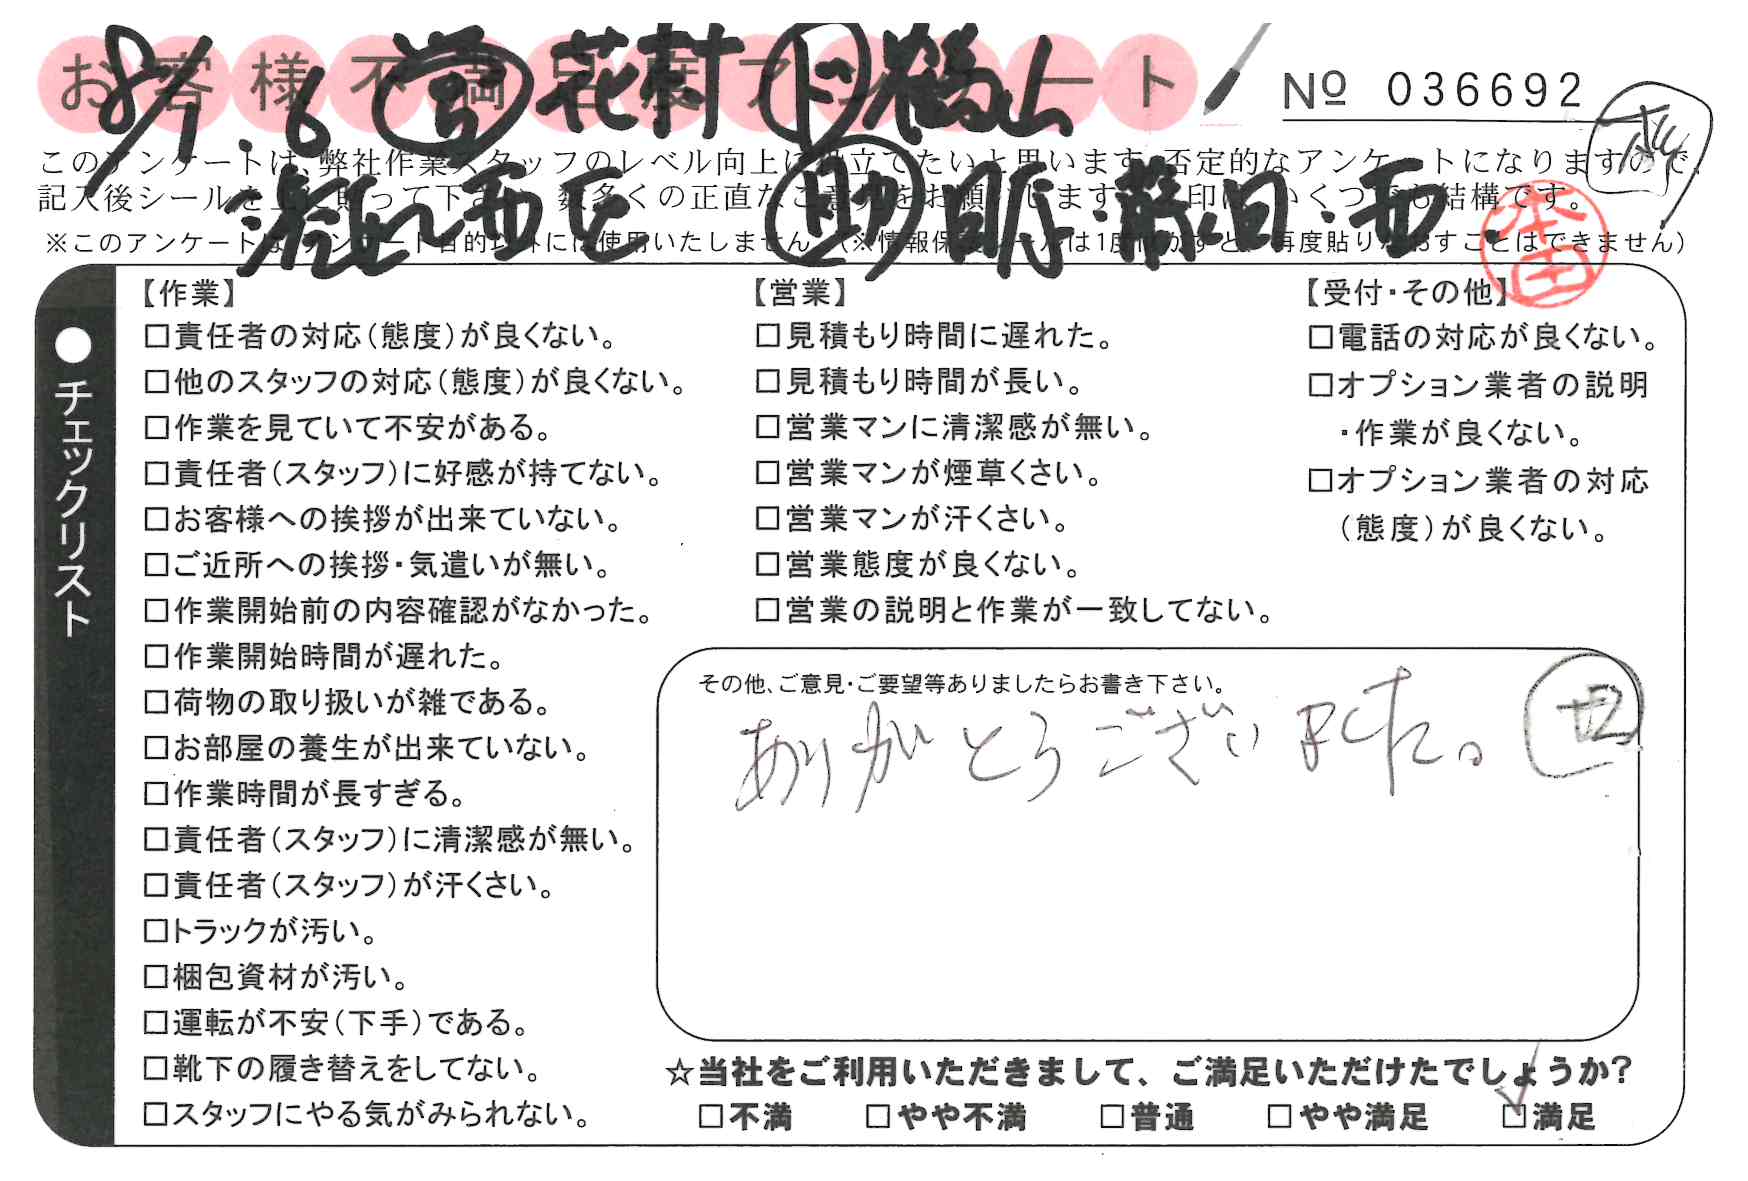 お客様不満足度アンケート
8/1.6 営 花村 ド 鶴山
№ 036692
このアンケートは、弊社作業スタッフのレベル向上に役立てたいと思います。否定的なアンケートになりますので、
記入後シールを上に貼って下さい。数多くの正直なご意見をお願いします。✓印は、いくつでも結構です。
助
本田
※このアンケートは、アンケート目的以外には使用いたしません。(※情報保護シールは1度はがすと、再度貼りなおすことはできません)
●チェックリスト
【作業】
□責任者の対応(態度)が良くない。
□他のスタッフの対応(態度)が良くない。
□作業を見ていて不安がある。
□責任者(スタッフ)に好感が持てない。
□お客様への挨拶が出来ていない。
□ご近所への挨拶・気遣いが無い。
□作業開始前の内容確認がなかった。
□作業開始時間が遅れた。
□荷物の取り扱いが雑である。
□お部屋の養生が出来ていない。
□作業時間が長すぎる。
□責任者(スタッフ)に清潔感が無い。
□責任者(スタッフ)が汗くさい。
□トラックが汚い。
□梱包資材が汚い。
□運転が不安(下手)である。
□靴下の履き替えをしてない。
□スタッフにやる気がみられない。
【営業】
□見積もり時間に遅れた。
□見積もり時間が長い。
□営業マンに清潔感が無い。
□営業マンが煙草くさい。
□営業マンが汗くさい。
□営業態度が良くない。
□営業の説明と作業が一致してない。
【受付・その他】
□電話の対応が良くない。
□オプション業者の説明
・作業が良くない。
□オプション業者の対応
(態度)が良くない。
その他、ご意見・ご要望等ありましたらお書き下さい。
ありがとうございました。
☆当社をご利用いただきまして、ご満足いただけたでしょうか?
□不満 □やや不満 □普通 □やや満足 ☑満足